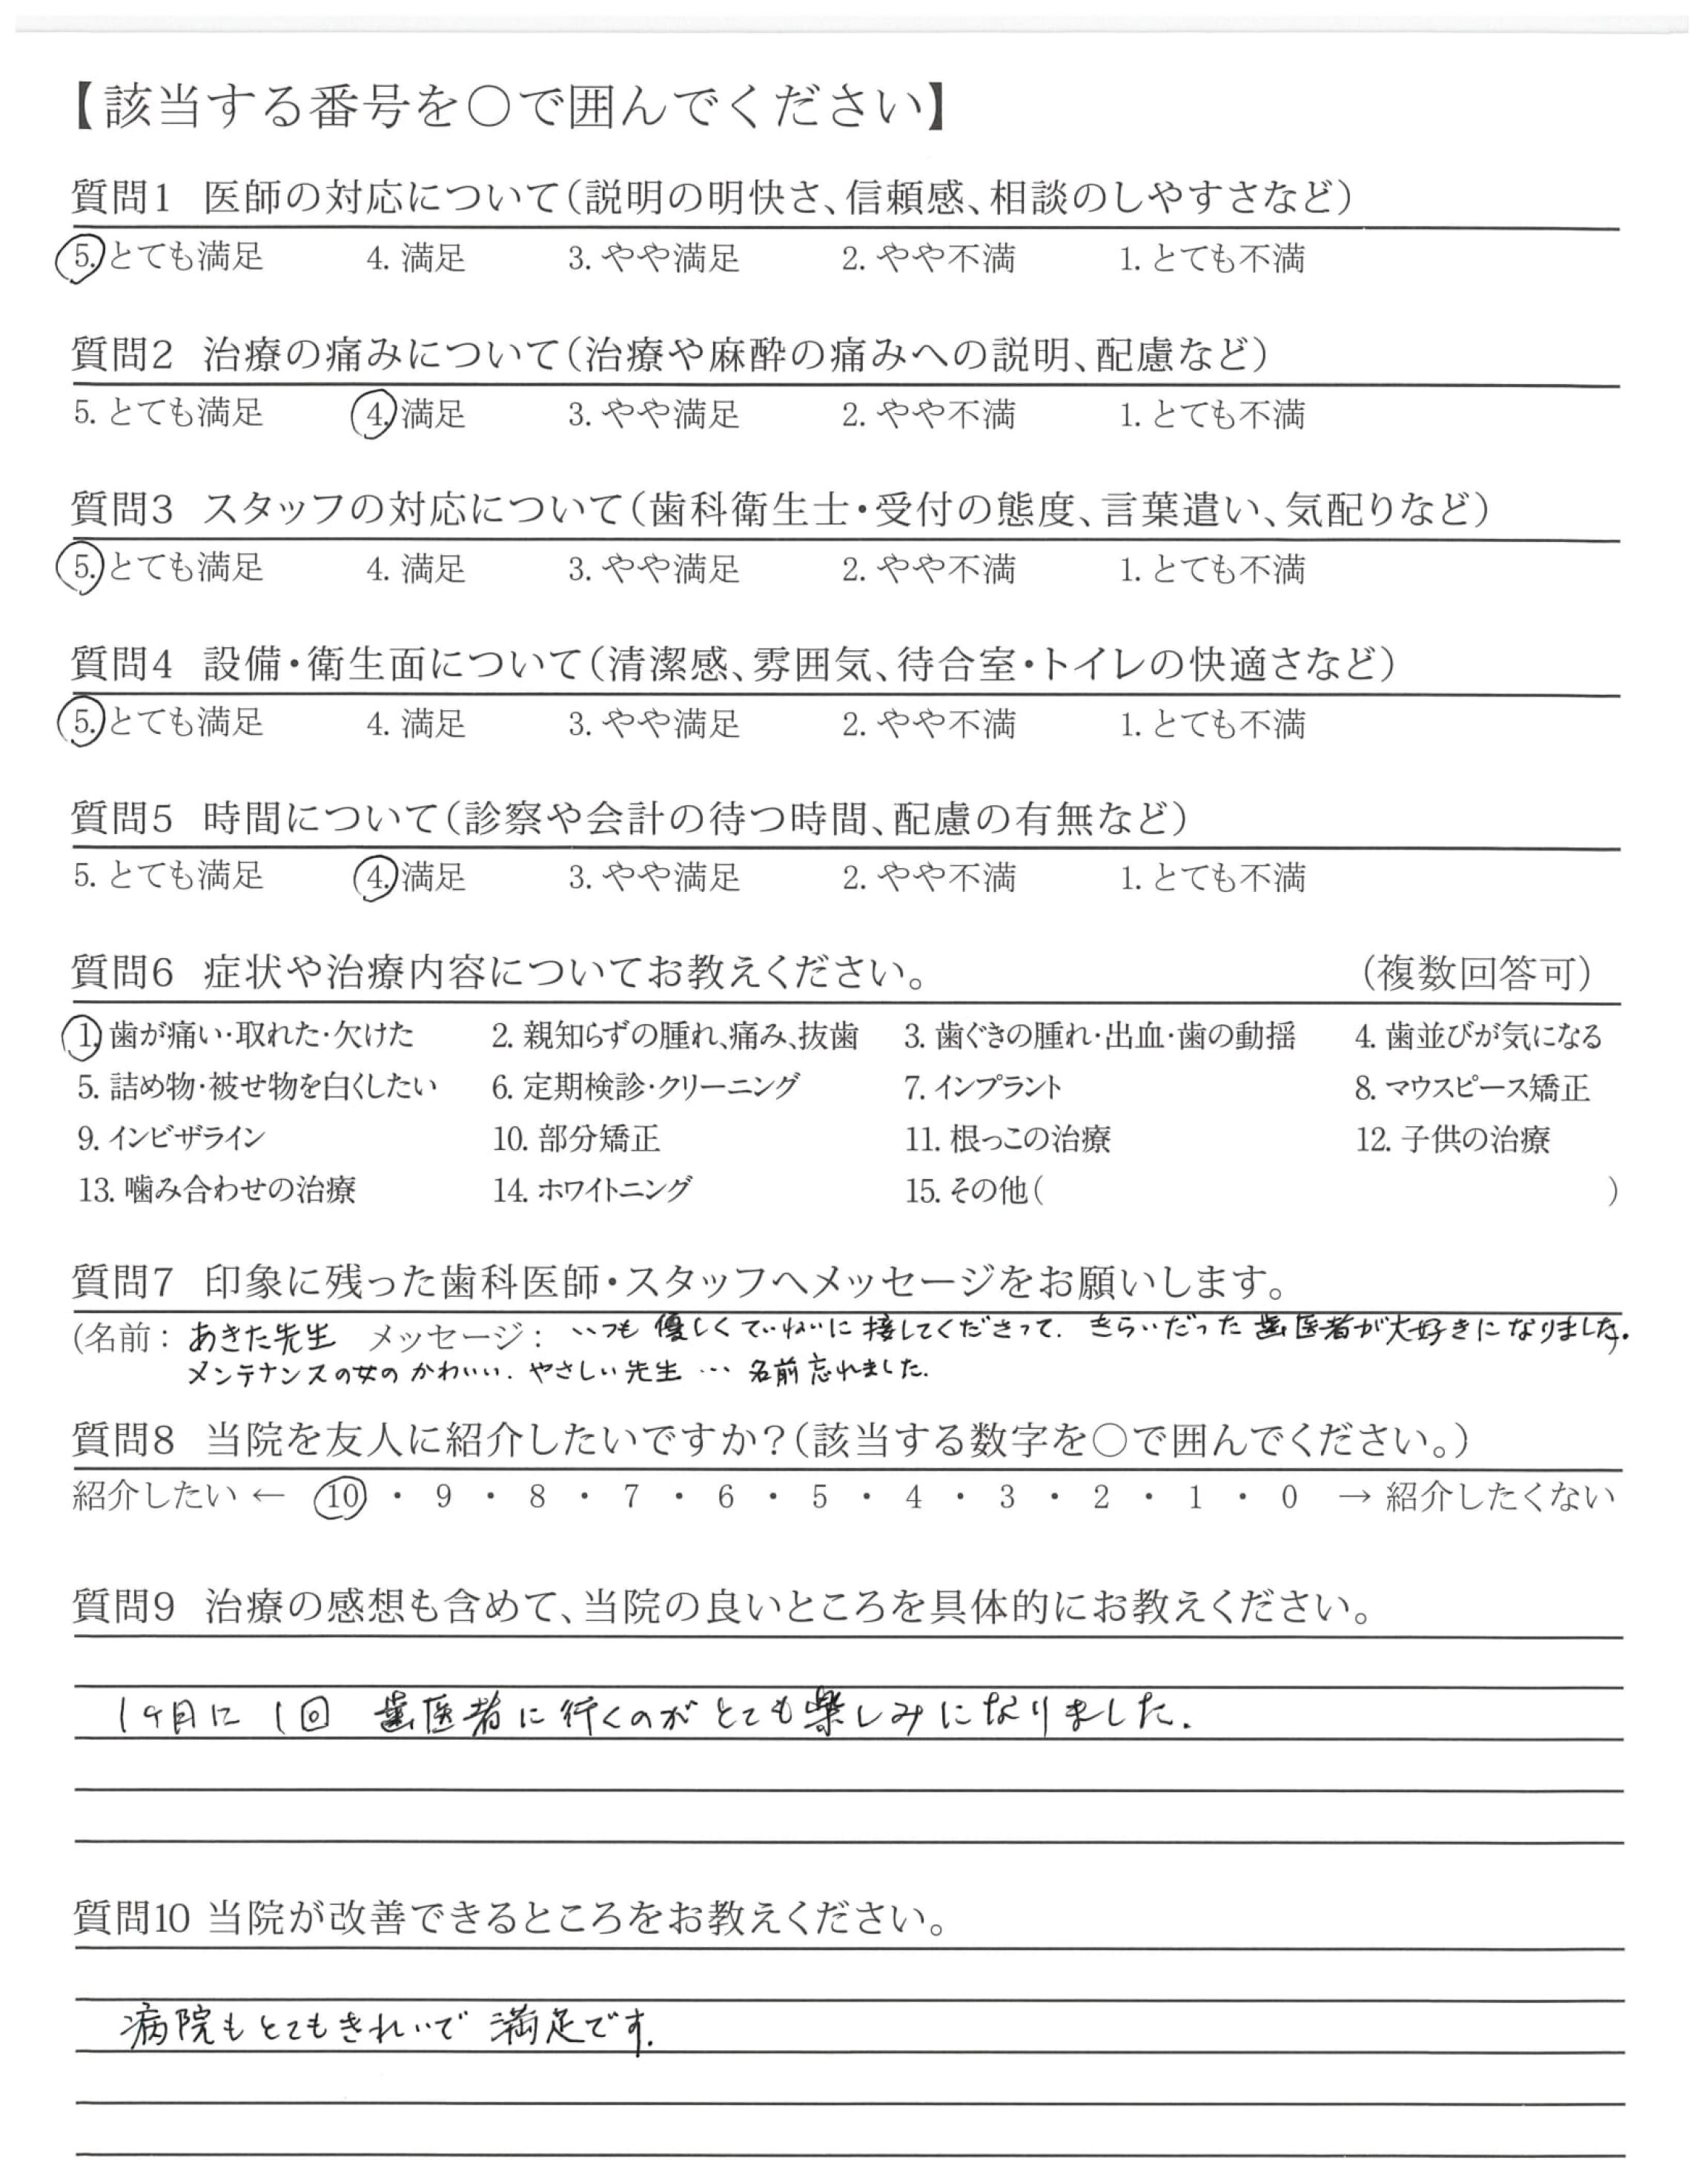 【該当する番号を○で囲んでください】
質問1 医師の対応について(説明の明快さ、信頼感、相談のしやすさなど)
5. とても満足 4. 満足 3. やや満足 2. やや不満 1. とても不満
質問2 治療の痛みについて(治療や麻酔の痛みへの説明、配慮など)
5. とても満足 4. 満足 3. やや満足 2. やや不満 1. とても不満
質問3 スタッフの対応について(歯科衛生士・受付の態度、言葉遣い、気配りなど)
5. とても満足 4. 満足 3. やや満足 2. やや不満 1. とても不満
質問4 設備・衛生面について(清潔感、雰囲気、待合室・トイレの快適さなど)
5. とても満足 4. 満足 3. やや満足 2. やや不満 1. とても不満
質問5 時間について(診察や会計の待つ時間、配慮の有無など)
5. とても満足 4. 満足 3. やや満足 2. やや不満 1. とても不満
質問6 症状や治療内容についてお教えください。 (複数回答可)
1. 歯が痛い・取れた・欠けた 2. 親知らずの腫れ、痛み、抜歯 3. 歯ぐきの腫れ・出血・歯の動揺 4. 歯並びが気になる
5. 詰め物・被せ物を白くしたい 6. 定期検診・クリーニング 7. インプラント 8. マウスピース矯正
9. インビザライン 10. 部分矯正 11. 根っこの治療 12. 子供の治療
13. 噛み合わせの治療 14. ホワイトニング 15. その他( )
質問7 印象に残った歯科医師・スタッフへメッセージをお願いします。
(名前: あきた先生 メッセージ: いつも優しくていねいに接してくださって、きらいだった歯医者が大好きになりました。)
メンテナンスの女のかわいい、やさしい先生… 名前忘れました。
質問8 当院を友人に紹介したいですか?(該当する数字を○で囲んでください。)
紹介したい ← 10 ・ 9 ・ 8 ・ 7 ・ 6 ・ 5 ・ 4 ・ 3 ・ 2 ・ 1 ・ 0 → 紹介したくない
質問9 治療の感想も含めて、当院の良いところを具体的にお教えください。
1ヶ月に1回 歯医者に行くのがとても楽しみになりました。
質問10 当院が改善できるところをお教えください。
病院もとてもきれいで 満足です。